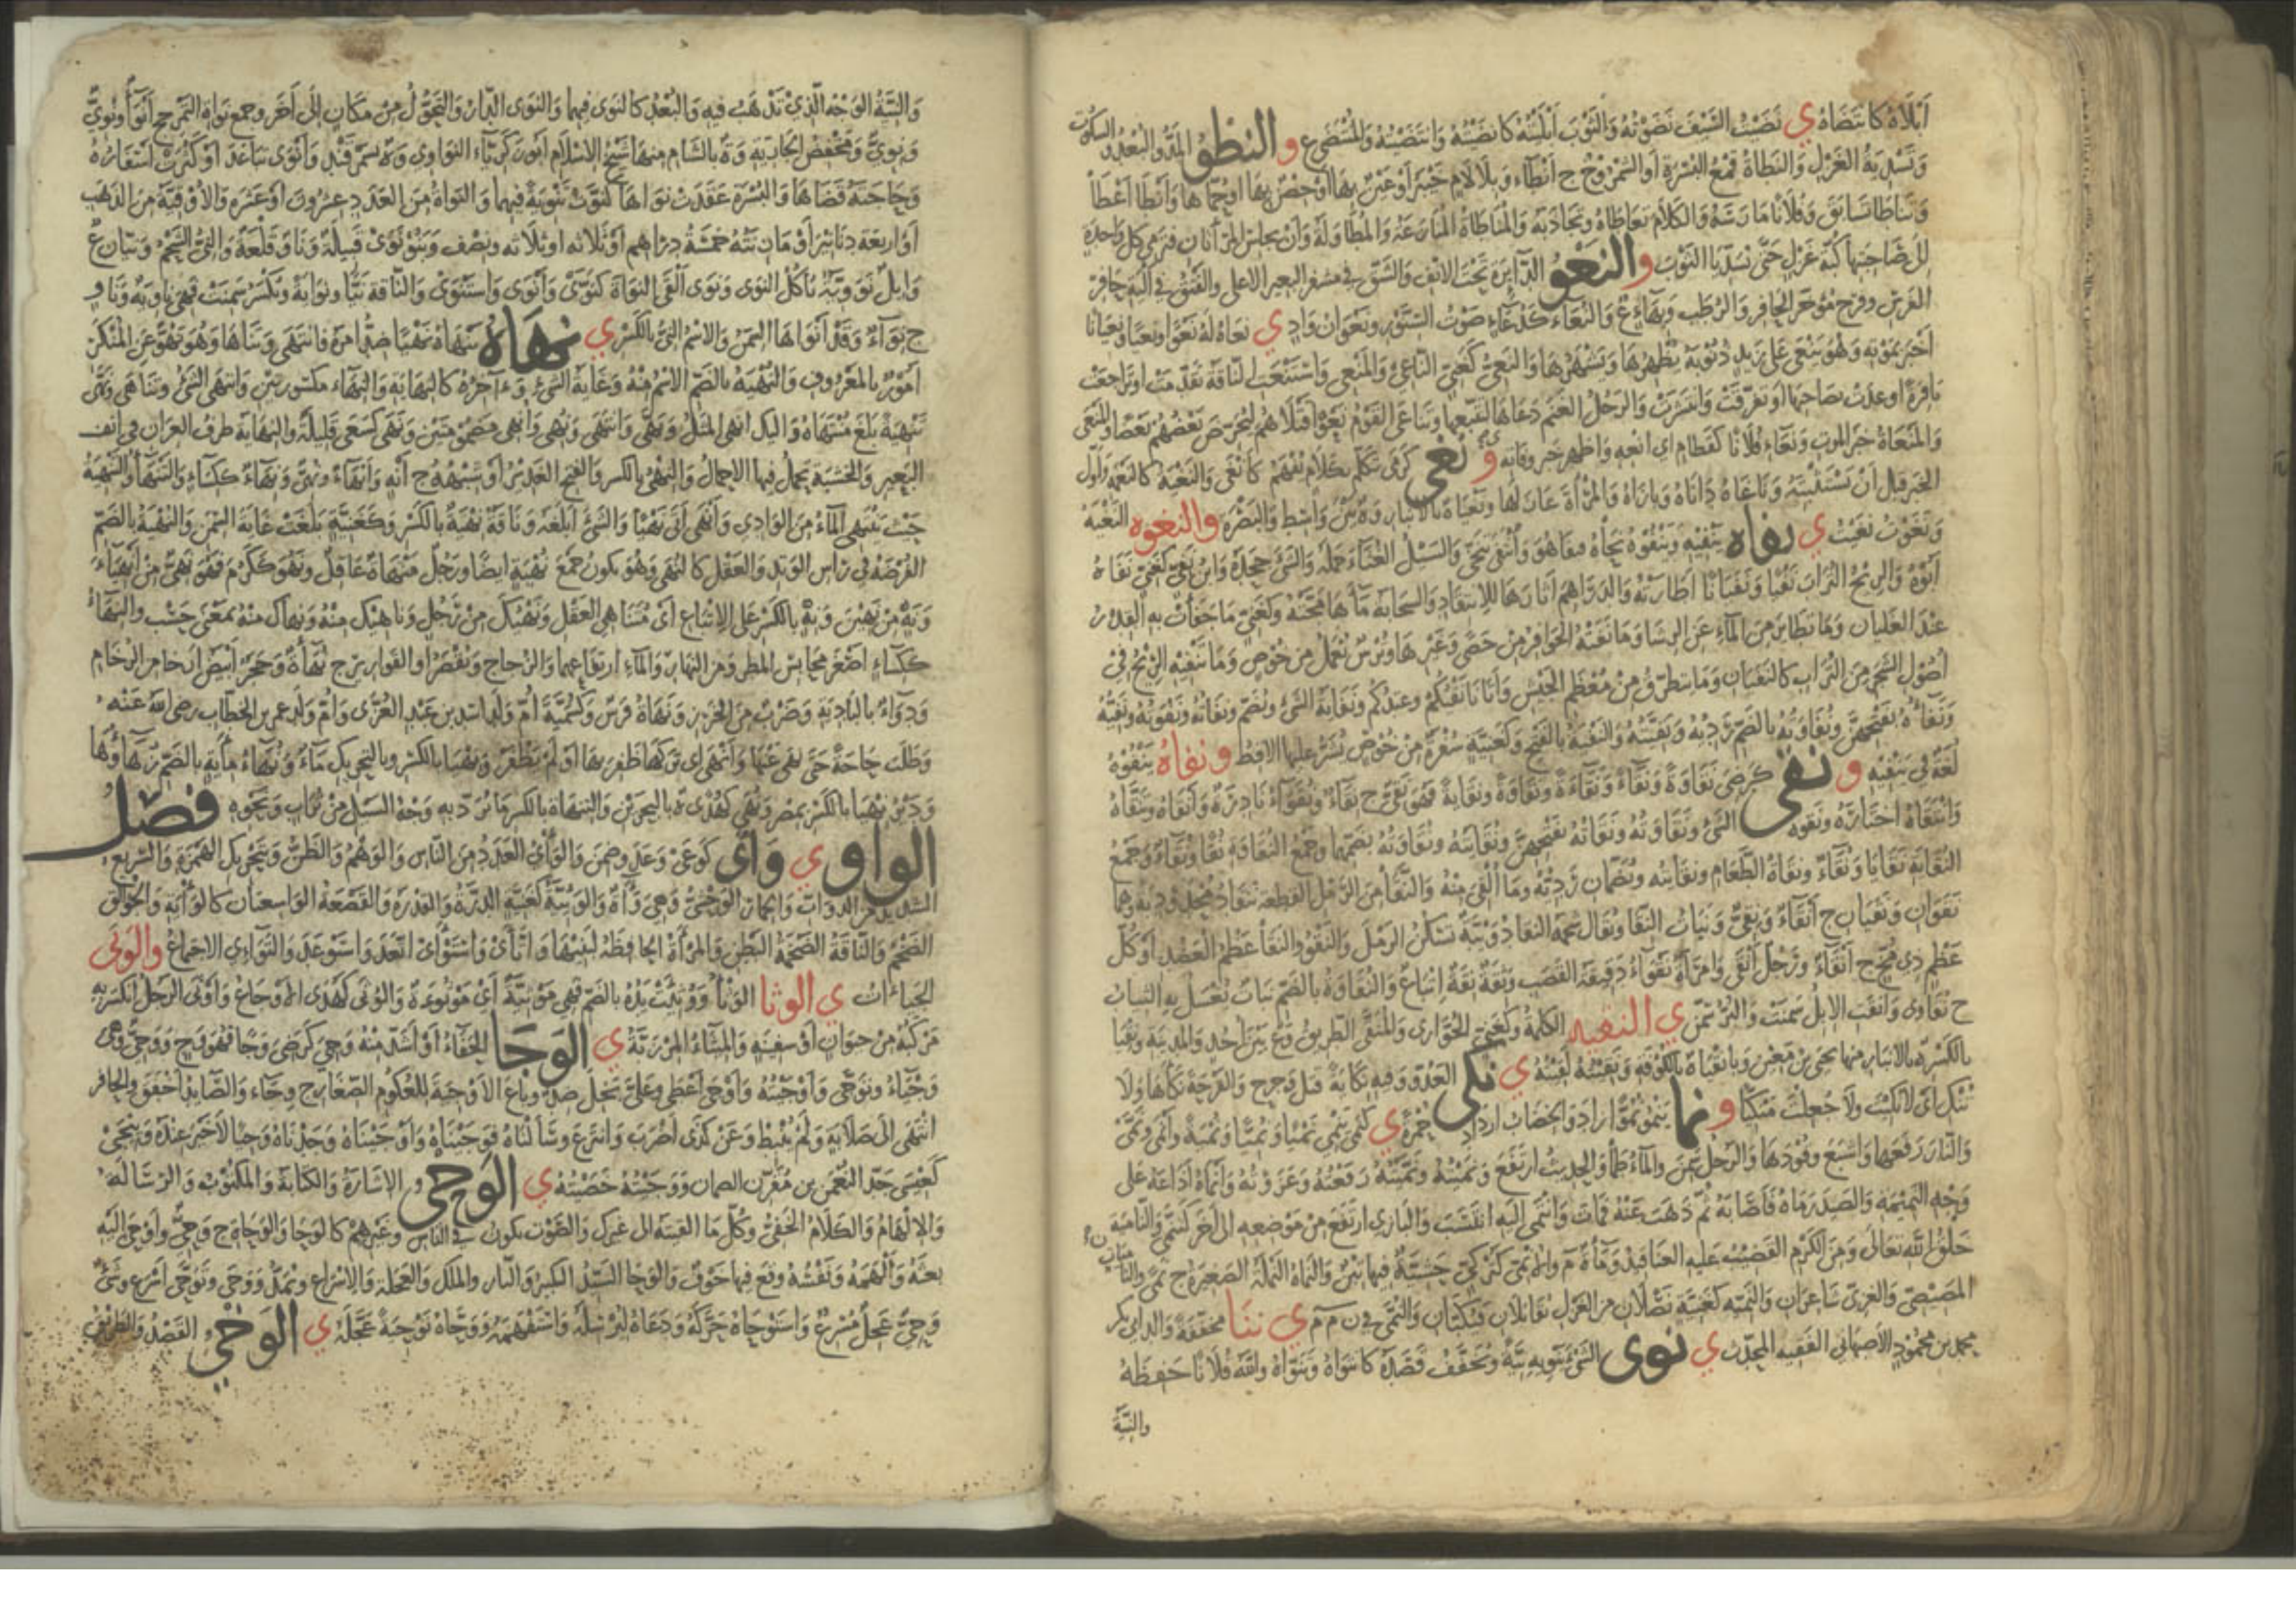 أبلاه كانتضاه ي نضيت السيف نضوته والثوب أبليته كانضيته وانتضيته والمنتضى ع و النطو المد والبعد والسكوت
وتسدية الغزل والنطاة قمع البسرة أو الشمروخ ج أنطاء وبلا لام خيبر أو عين بها أو حصن بها أو حماها وأنطا أعطا
وتناطا تسابق وفلانا مارسه والكلام تعاطاه وتجاذبه والمناطاة المنازعة والمطاولة وأن يجلس المرأتان فترمي كل واحدة
للصاحبتها كبة غزل حتى تسديا الثوب و النعو الدائرة تحت الأنف والشق في مشفر البعير الأعلى والفتق في ألية حافر
الفرس وفرج مؤخر الحافر والرطب وبهاء ع والنعاء كدعاء صوت السنور ونعوان واد ي نعاه له نعوا ونعيا ونعيانا
أخبر بموته وهو ينعى على زيد ذنوبه يظهرها ويشهرها والنعي كغني الناعي والمنعي واستنعت الناقة تقدمت أو تراجعت
نافرة أو عدت بصاحبها أو تفرقت وانتشرت والرجل الغنم دعاها لتتبعه وتناعى القوم نعوا قتلاهم ليحرض بعضهم بعضا والمنعى
والمنعاة خبر الموت ونعاء فلانا كقطام أي انعه وأظهر خبر وفاته و نغى كرمى تكلم بكلام يفهم كأنغى والنغية كالنغمة وأول
الخبر قبل أن تستثبته وناغاه داناه وباراه والمرأة غازلها ونغيا ة بالأنبار وة بين واسط والبصرة والنغوه النغية
ونغوت نغيت ي نفاه ينفيه وينفوه نحاه فنفا هو وانتفى تنحى والسيل الغثاء حمله والشيء جحده وابن نفي كغني نفاه
أبوه والريح التراب نفيا ونفيانا أطارته والدراهم أثارها للانتقاد والسحابة ماءها مجته وكغني ما جفأت به القدر
عند الغليان وما تطاير من الماء عن الرشا وما نفته الحوافر من حصى وغيرها وترس تعمل من خوص وما تنفيه الريح في
أصول الشجر من التراب كالنفيان وما يتطرف من معظم الجيش وأتانا نفيكم وعيدكم ونفاية الشيء ويضم ونفاته ونفوته ونفيته
ونفاءه بفتحهن ونفاوته بالضم رديه وبقيته والنفية بالفتح وكغنية سفرة من خوص يشر عليها الأقط و نفاه ينفوه
لغة في ينفيه و نقى كرضى نقاوة ونقاء ونقاءة ونقاوة ونقاية فهو نقي ج نقاء ونقواء نادرة وأنقاه وتنقاه
وانتقاه اختاره ونقوه الشيء ونقاوته ونقاته بفتحهن ونقايته ونقاوته بضمهما وجمع النقاوة نقا ونقاء وجمع
النقاية نقايا ونقاء ونقاة الطعام ونقايته ويضمان رديه وما ألقي منه والنقا من الرمل القطعة تنقاد محدودبة وهما
نقوان ونقيان ج أنقاء ونقي وبنات النقا ويقال شحمة النقا دويبة تسكن الرمل والنقو والنقا عظم العضد أو كل
عظم ذي مخ ج أنقاء ورجل أنقى وامرأة نقواء دقيقة القصب وثقة نقة إتباع والنقاوة بالضم نبات يغسل به الثياب
ج نقاوى وأنقت الإبل سمنت والبر سمن ي النقيه الكلمة وكغني الحوارى والمنقى الطريق وع بين أحد والمدينة ونقيا
بالكسر ة بالأنبار منها يحيى بن معين وبانقياة بالكوفة ونقيته لقيته ي نكى العدو وفيه نكاية قتل وجرح والقرحة نكأها ولا
تنك أي لا نكيت ولا جعلت منكيا و نما ينمو نموا زاد والخضاب ازداد حمرة ي كنمى ينمي نميا ونميا ونمية وأنمى ونمى
والنار رفعها وأشبع وقودها والرجل سمن والماء طما والحديث ارتفع ونميته ونميته رفعته وعزوته وأنماه أذاعه على
وجه النميمة والصيد رماه فأصابه ثم ذهب عنه فمات وانتمى إليه انتسب والبازي ارتفع من موضعه إلى آخر كتنمى والنامية
خلق الله تعالى ومن الكرم القضيب عليه العناقيد وماءة م والأنمى كتركي حشية فيها تبن والنماة النملة الصغيرة ج نمى والنامي
المصيصي والغزي شاعران والنميه كغنية نصلان من الغزل يقابلان فيكبان والنمى في ن م م ي ننا مخففة والد أبي بكر
محمد بن محمود الأصبهاني الفقيه المحدث ي نوى الشيء ينويه نية ويخفف قصده كانتواه وتنواه والله فلانا حفظه
والنية
والنية الوجه الذي تذهب فيه والبعد كالنوى فيهما والنوى الدار والتحول من مكان إلى آخر وجمع نواة التمر جج أنواء ونوي
ونوي ومخفض الجارية وة بالشام منها شيخ الإسلام أبو زكرياء النواوي وة بسمرقند وأنوى تباعد أو كثرت أسفاره
وحاجته قضاها والبسرة عقدت نواها كنوت تنوية فيهما والنواة من العدد عشرون أو عشرة والأوقية من الذهب
أو أربعة دنانير أو ما زنته خمسة دراهم أو ثلاثة أو ثلاثه ونصف وبنو نوى قبيلة ونا وقلعة والني الشحم ونيان ع
وإبل نووية تأكل النوى ونوى ألقى النواة كنوى وأنوى واستنوى والناقة نيا ونواية ويكسر سمنت فهي ناوية وناو
ج نواء وقد أنواها السمن والاسم الني بالكسر ي نهاه ينهاه نهيا ضد أمره فانتهى وتناهى وهو نهو عن المنكر
أمور بالمعروف والنهية بالضم الاسم منه وغاية الشيء وءاخره كالنهاية والنهاء مكسورتين وانتهى الشيء وتناهى ونهى
تنهية بلغ منتهاه وإليك أنهى المثل ونهى وانتهى ونهي وأنهي مضمومتين ونهى كسعى قليلة والنهاية طرف العران في أنف
البعير والخشبة يحمل فيها الأحمال والنهي بالكسر والفتح الغدير أو شبهه ج أنه وأنهاء ونهي ونهاء ككساء والتنهاء والتنهية
حيث ينتهي الماء من الوادي وأنهى أتى نهيا والشيء أبلغه وناقة نهية بالكسر وكغنية بلغت غاية السمن والنهية بالضم
الفرضة في رأس الوتد والعقل كالنهى وهو يكون جمع نهية أيضا ورجل منهاة عاقل ونهو ككرم فهو نهي من أنهياء
ونه من نهين ونه بالكسر على الإتباع أي متناهي العقل ونهيك من رجل وناهيك منه ونهاك منه بمعنى حسب والنهاء
ككساء أصغر محابس المطر ومن النهار والماء ارتفاعهما والزجاج ويقصر أو القوارير ج نهاة وحجر أبيض أرخى من الرخام
ودواء بالبادية وضرب من الخرز ونهاة فرس وكسمية أم ولد أسد بن عبد العزى وأم ولد عمر بن الخطاب رضي الله عنه
وطلب حاجة حتى نهي عنها وأنهى أي تركها ظفر بها أو لم يظفر ونهيا بالكسر وبالتحريك ماء ونهاء مائة بالضم زهاؤها
ودير نهيا بالكسر بمصر ونهي كهدى ة بالبحرين والتنهاة بالكسر ما ترد به وجه السيل من تراب ونحوه فصل
الواو ي وأى كوعى وعد وضمن والوأي العدد من الناس والوهم والظن وبتحريك الهمزة والسريع
الشديد من الدواب والحمار الوحشي وهي وآة والوئية كغنية الدرة والقدرة والقصعة الواسعتان كالوأية والجوالق
الضخم والناقة الضخمة البطن والمرأة الحافظة لبيتها واتأى واستوأى اتعد واستوعد والتوائي الاجتماع والوتى
الجياءات ي الوثا الوثأ ووثيت يده بالضم فهي موثية أي موثوءة والوثى كهدى الأوجاع وأوثى الرجل انكسر به
مركبه من حيوان أو سفينة والميثاء المرزبة ي الوجا الحفاء أو أشد منه وجي كرضي وجا فهو وج ووجي وهي
وجياء وتوجى وأوجيته وأوجى أعطى وعليه بخل ضد وباع الأوجية للعكوم الصغار ج وجاء والصائد أخفق والحافر
انتهى إلى صلابة ولم ينبط وعن كذا أضرب وانتزع وسألناه فوجيناه وأوجيناه وجدناه وجيا لا خير عنده وينجى
كعيسى جد النعمن بن مقرن الصحابي ووجيته خصيته ي الوحي و الإشارة والكتابة والمكتوب والرسالة
والإلهام والكلام الخفي وكل ما ألقيته إلى غيرك والصوت يكون في الناس وغيرهم كالوحا والوحاة ج وحي وأوحى إليه
بعثه وألهمه ونفسه وقع فيها خوف والوحا السيد الكبير والنار والملك والعجلة والإسراع ويمد ووحى وتوحى أسرع وشيء
وحي عجل مسرع واستوحاه حركه ودعاه ليرسله واستفهمه ووحاه توحية عجله ي الوخي القصد والطريق